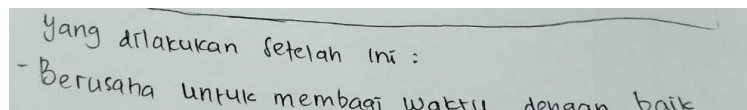 yang dilakukan setelah ini :
- Berusaha untuk membagi waktu dengan baik